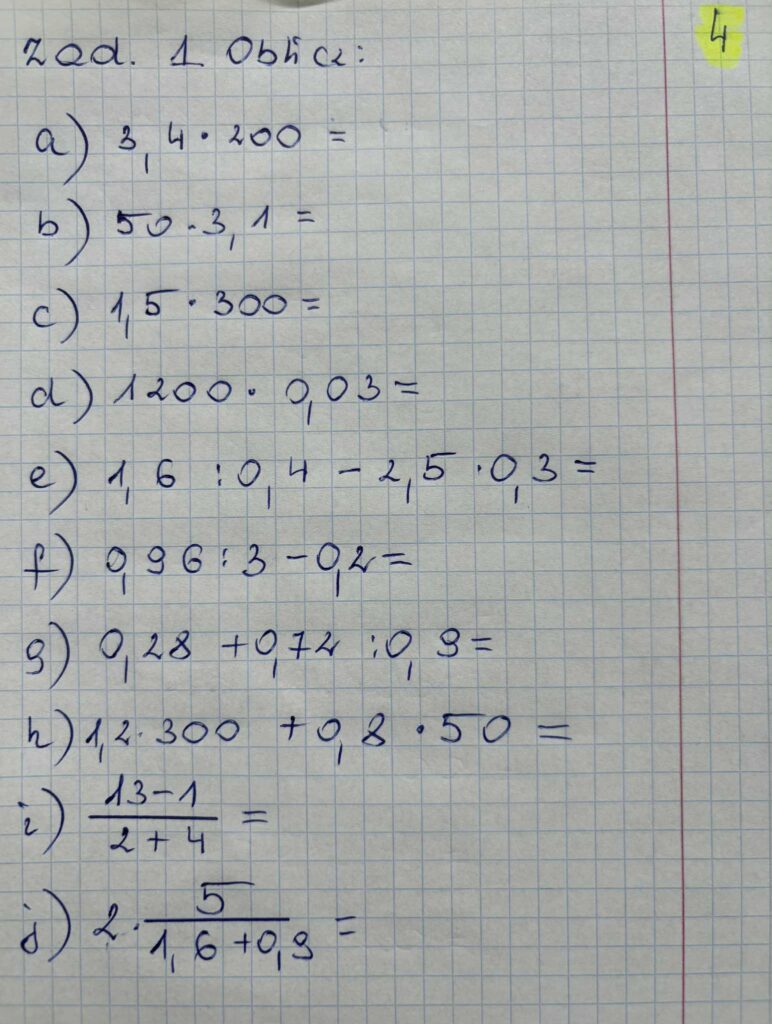 4
Zad. 1 Oblicz:
a) 3,4 · 200 =
b) 50 · 3,1 =
c) 1,5 · 300 =
d) 1200 · 0,03 =
e) 1,6 : 0,4 - 2,5 · 0,3 =
f) 0,96 : 3 - 0,2 =
g) 0,28 + 0,72 : 0,9 =
h) 1,2 · 300 + 0,8 · 50 =
i) \frac{13-1}{2+4} =
j) 2 · \frac{5}{1,6+0,9} =